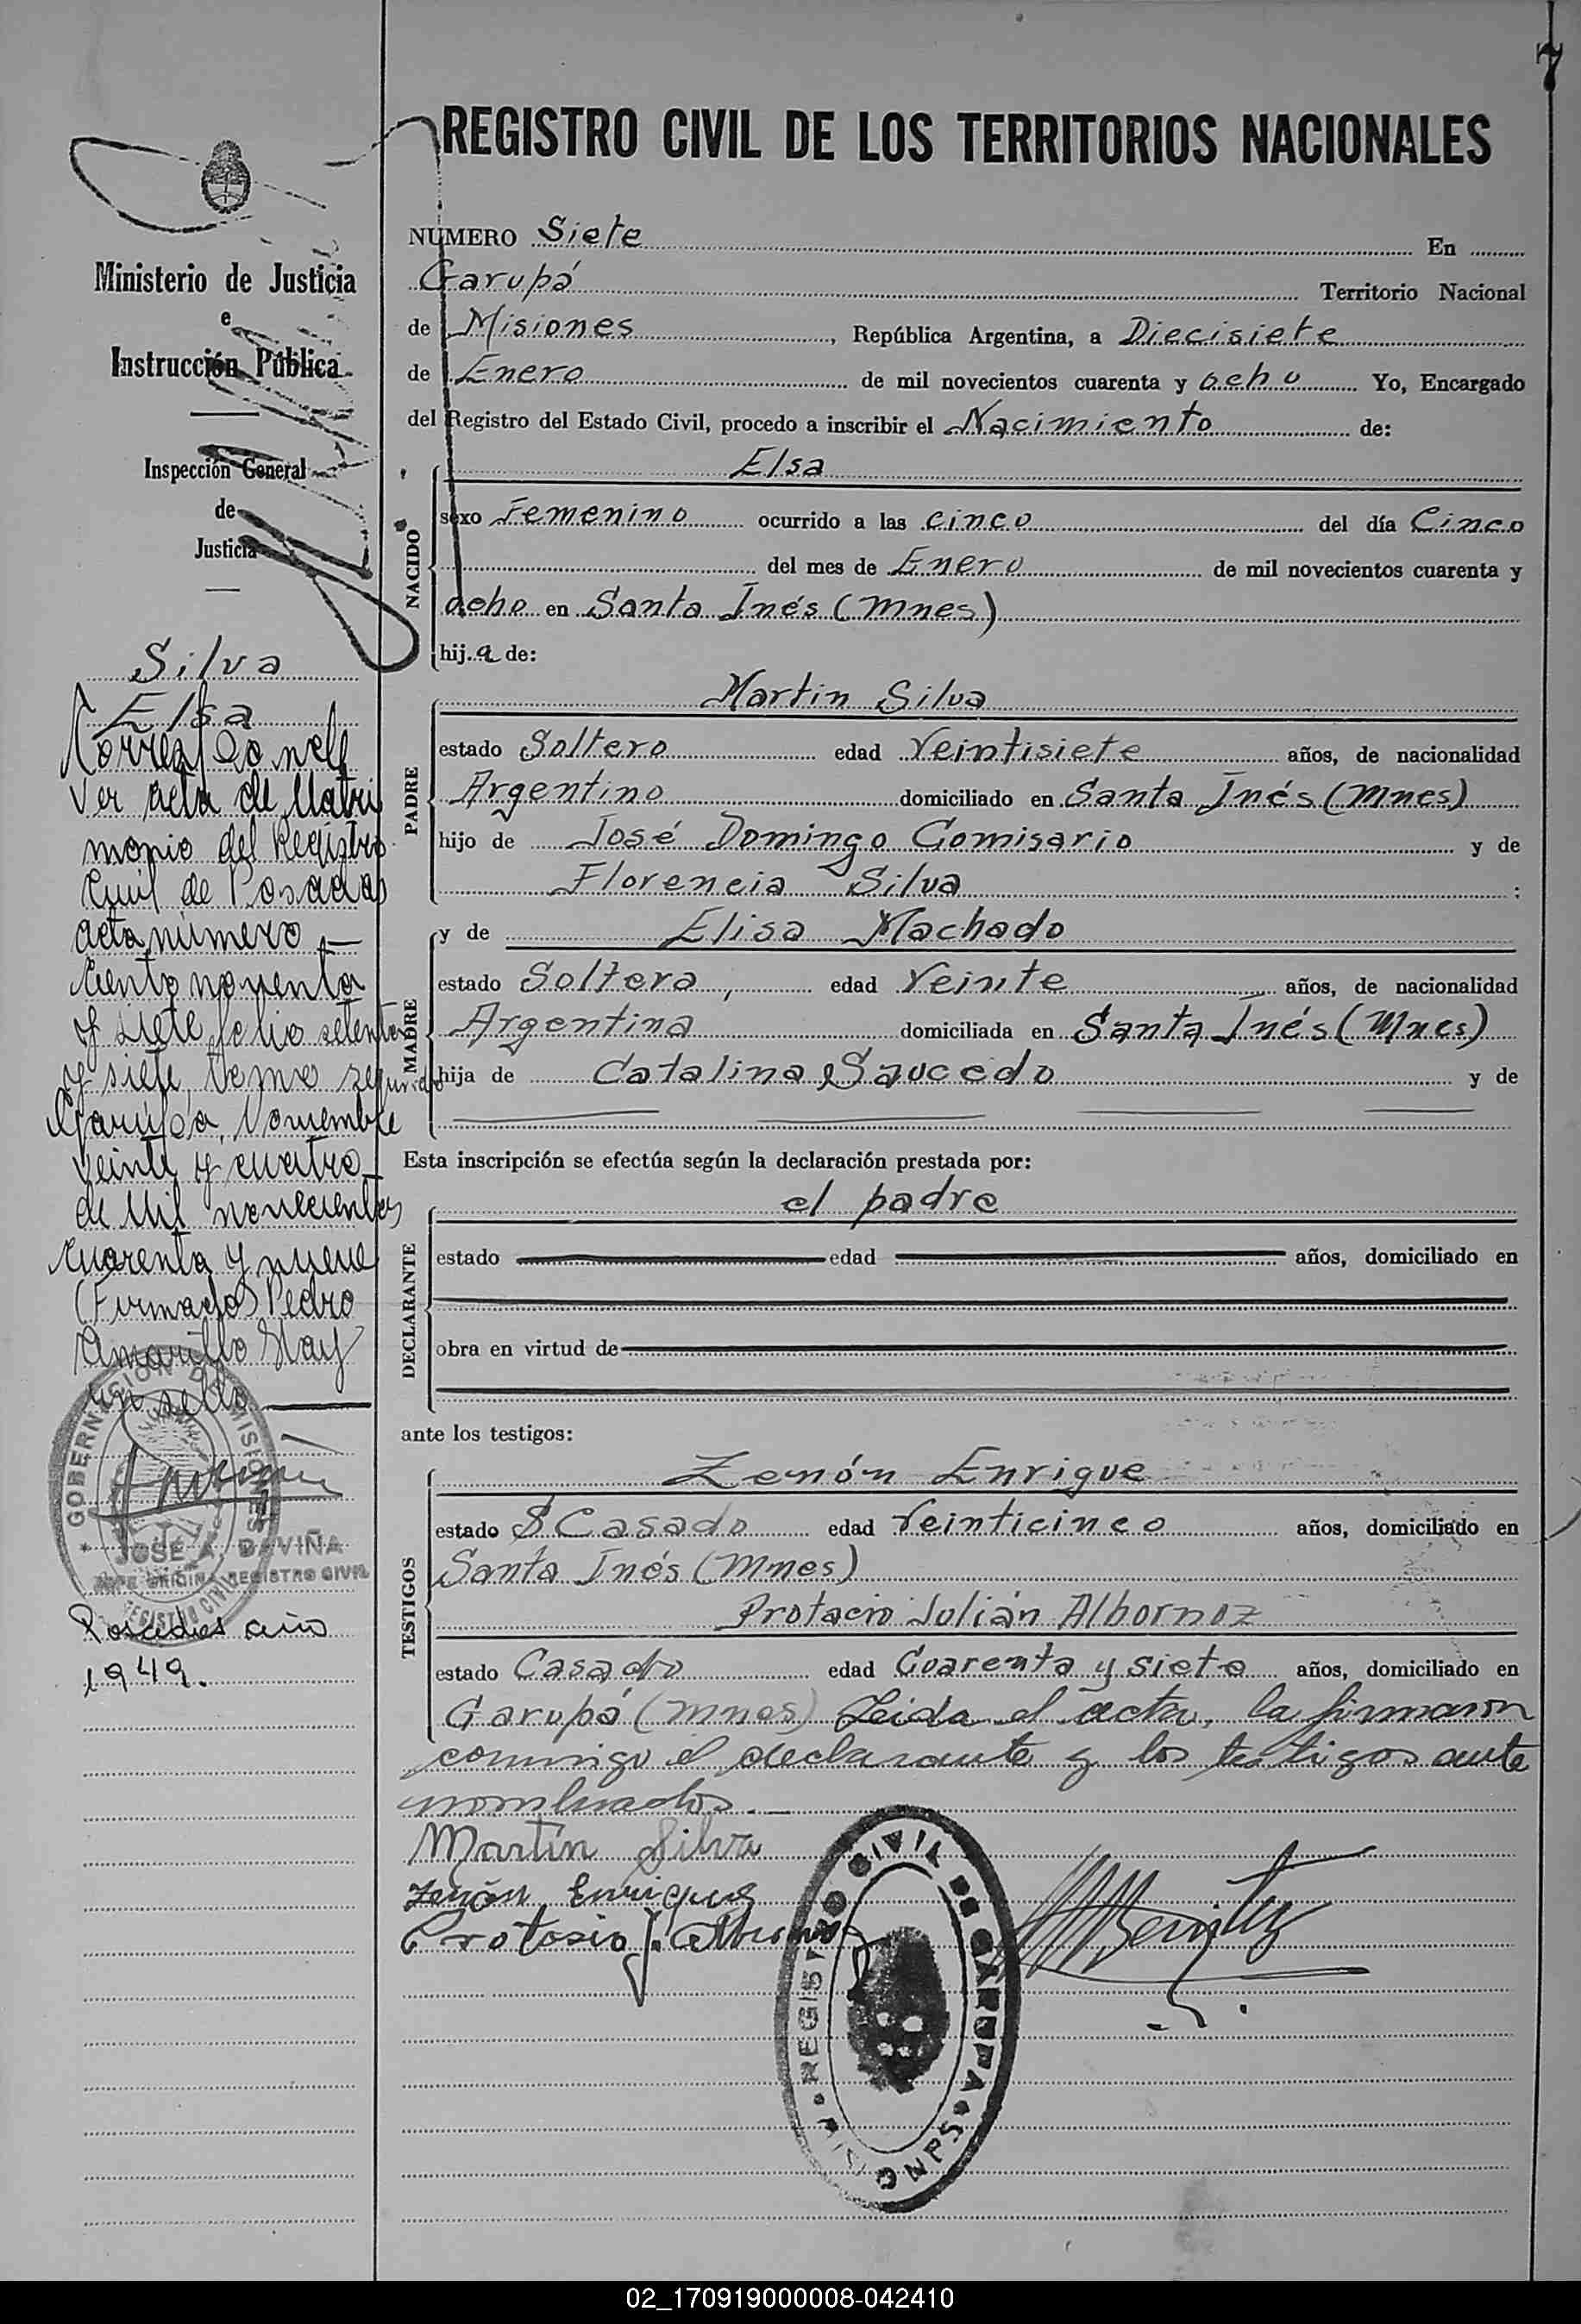 7
REGISTRO CIVIL DE LOS TERRITORIOS NACIONALES
Ministerio de Justicia
e
Instrucción Pública
Inspección General
de
Justicia
Silva
Elsa
Ver acta de Matri
monio del Registro
Civil de Posadas
acta número
ciento noventa
y siete folio setenta
y siete, tomo segundo
Garupá, Noviembre
veinte y cuatro
de Mil novecientos
cuarenta y nueve
(Firmado) Pedro
Amarillo Hay
un sello
GOBERNACION DE MISIONES
REGISTRO CIVIL
JOSÉ A. DAVIÑA
JEFE OFICINA REGISTRO CIVIL
Posadas año
1949.
NUMERO Siete En
Garupá Territorio Nacional
de Misiones, República Argentina, a Diecisiete
de Enero de mil novecientos cuarenta y ocho Yo, Encargado
del Registro del Estado Civil, procedo a inscribir el Nacimiento de:
NACIDO
Elsa
sexo Femenino ocurrido a las cinco del día Cinco
del mes de Enero de mil novecientos cuarenta y
ocho en Santa Inés (Mnes)
hija de:
PADRE
Martin Silva
estado Soltero edad Veintisiete años, de nacionalidad
Argentino domiciliado en Santa Inés (Mnes)
hijo de José Domingo Comisario y de
Florencia Silva;
MADRE
y de Elisa Machado
estado Soltera, edad Veinte años, de nacionalidad
Argentina domiciliada en Santa Inés (Mnes)
hija de Catalina Saucedo y de
Esta inscripción se efectúa según la declaración prestada por:
DECLARANTE
el padre
estado edad años, domiciliado en
obra en virtud de
ante los testigos:
TESTIGOS
Zenón Enrique
estado S Casado edad Veinticinco años, domiciliado en
Santa Inés (Mnes)
Protacio Julián Albornoz
estado Casado edad Cuarenta y siete años, domiciliado en
Garupá (Mnes) Leida el acta, la firmaron
conmigo el declarante y los testigos ante
nombrados.
Martín Silva
Zenón Enrique
Protasio J. Albornoz
Benitez
REGISTRO CIVIL DE GARUPA
02_170919000008-042410